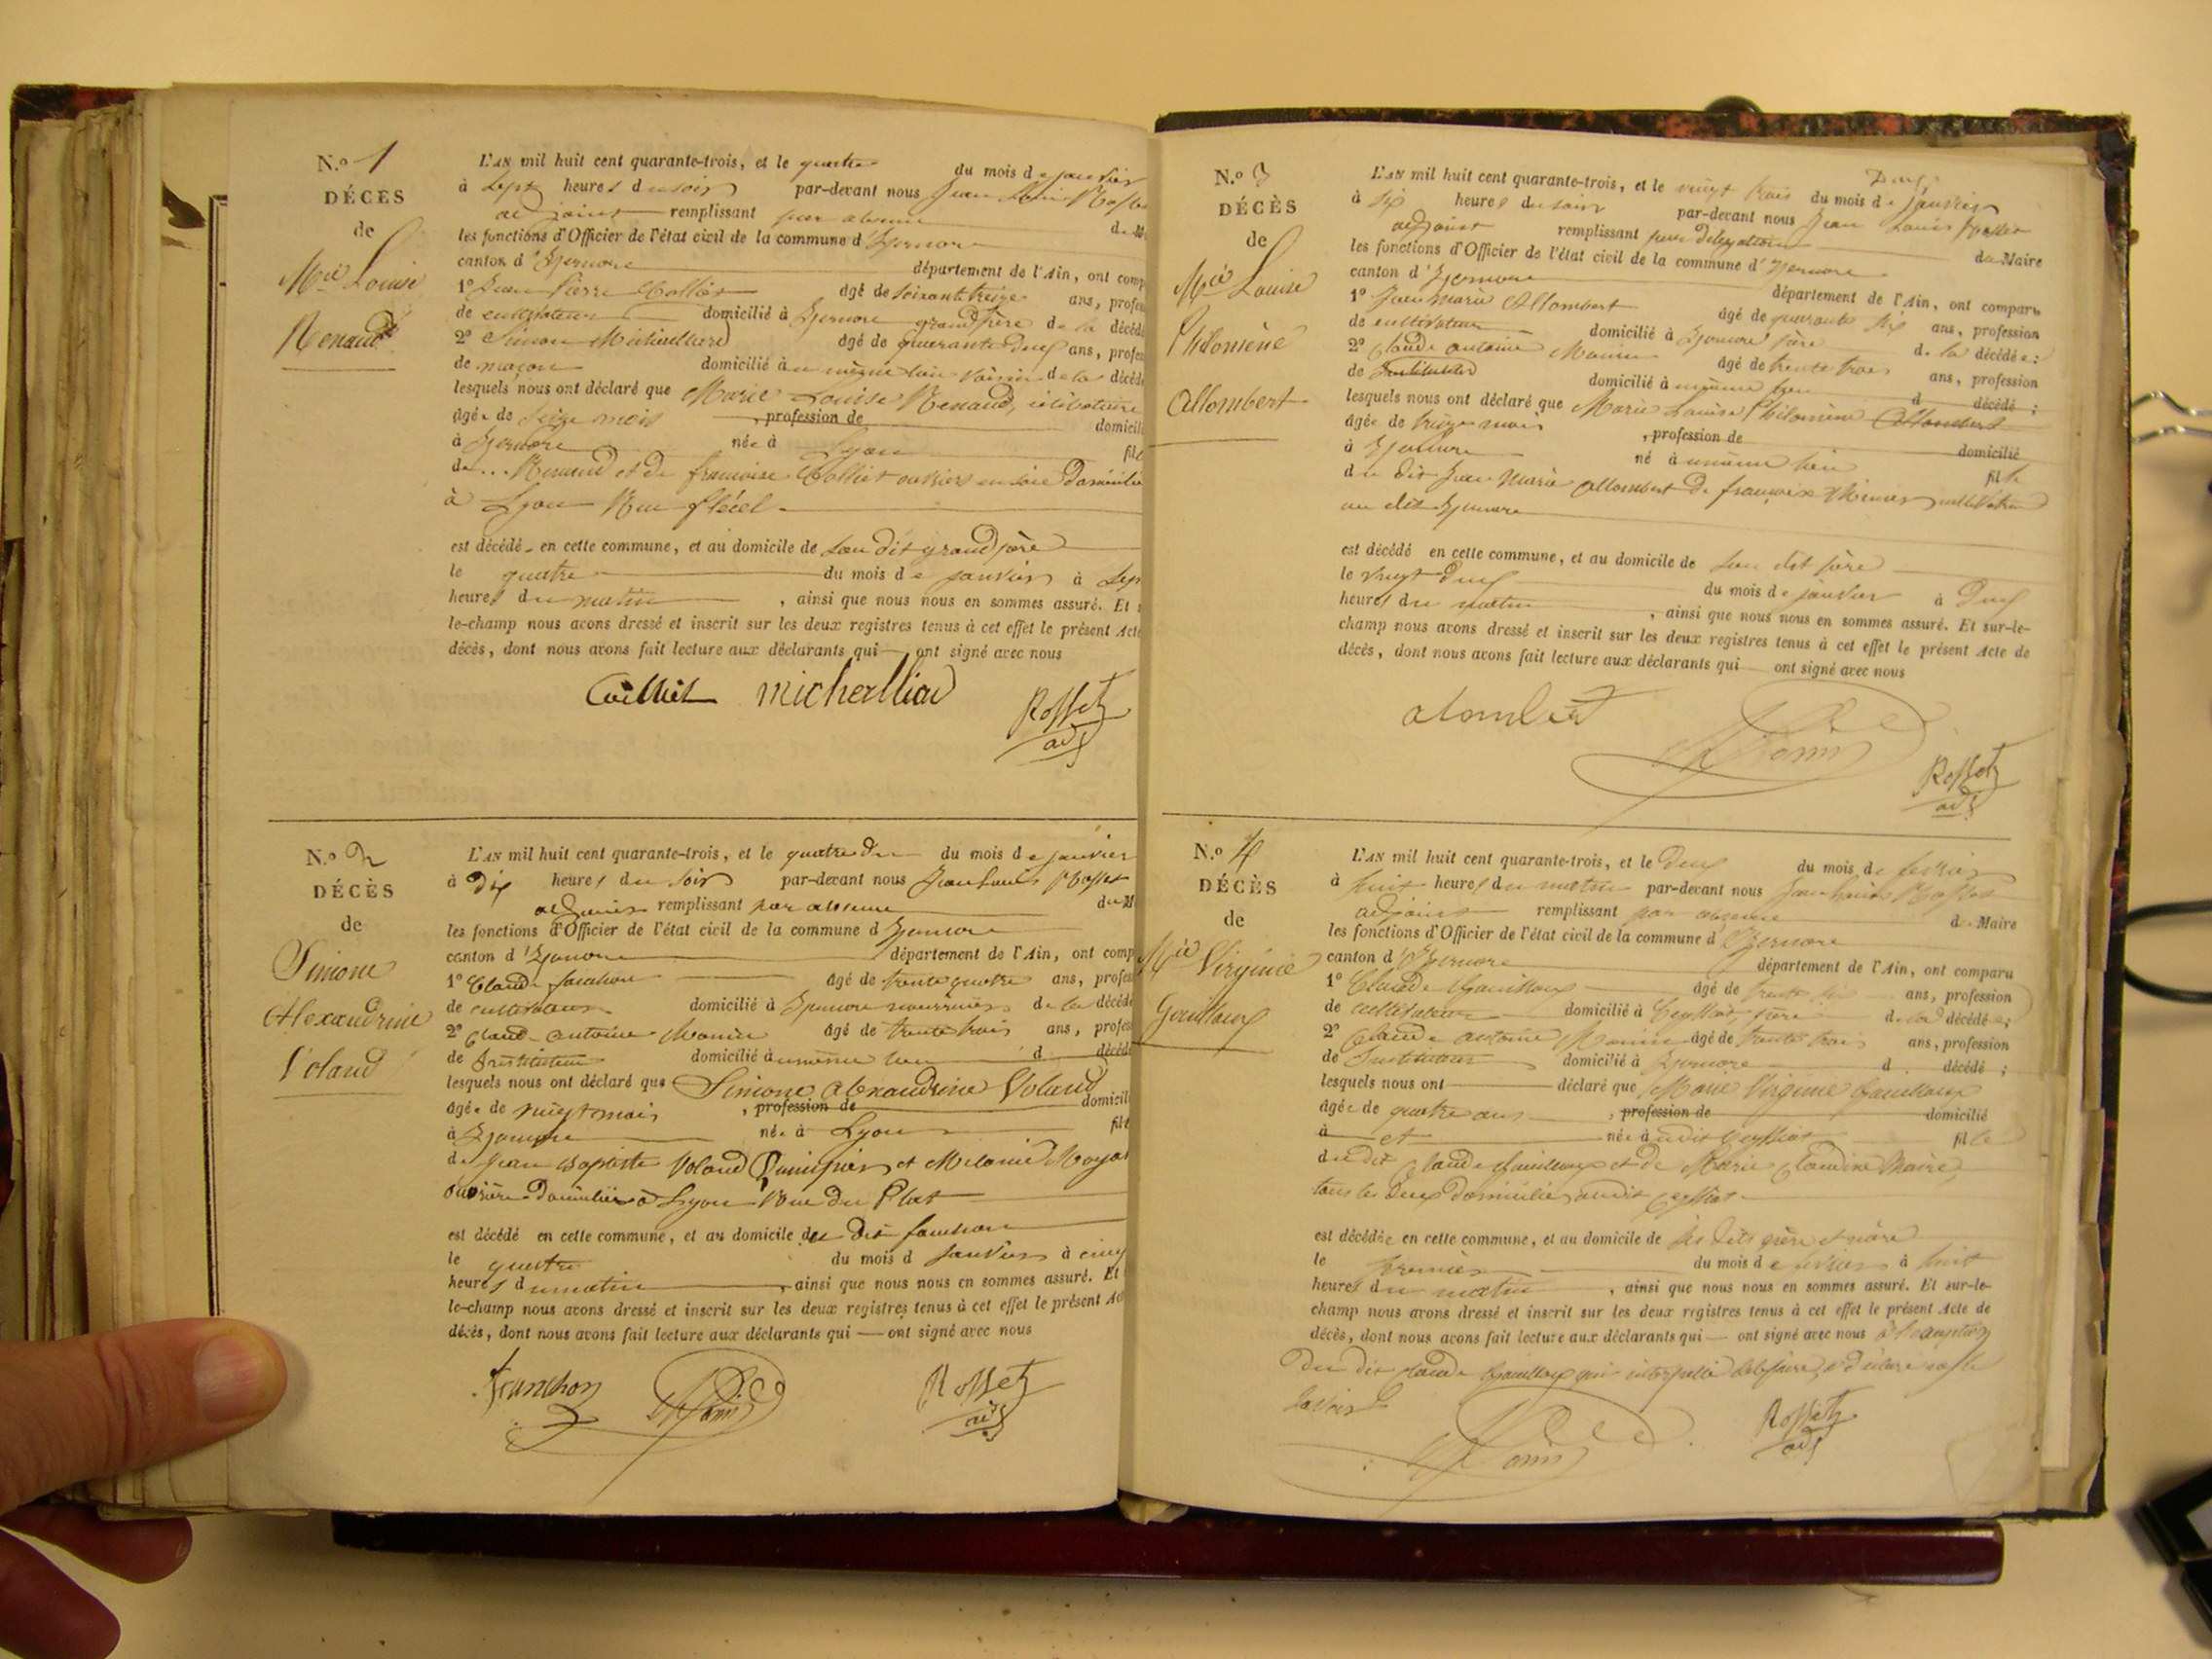 N.º 1
DÉCES
de
M.ie Louise
Renaud
L'AN mil huit cent quarante-trois, et le quatre du mois de janvier
à Sept heures du soir par-devant nous Jean Louis Rosset
adjoint remplissant par absence du M
les fonctions d'Officier de l'état civil de la commune d'Izernore
canton d'Izernore département de l'Ain, ont comp
1º Jean Pierre Colliet âgé de Soixante treize ans, profes
de cultivateur domicilié à Izernore grand père de la décédé
2º Simon Michailliard âgé de quarante deux ans, profes
de maçon domicilié à u même lieu voisin de la décédé
lesquels nous ont déclaré que Marie Louise Renaud, célibataire
âgée de Seize mois , profession de domicili
à Izernore née à Lyon fil
de ... Renaud et de françoise Colliet ouvriers en soie domiciliés
à Lyon Rue
est décédé en cette commune, et au domicile de Son dit grand père
le quatre du mois de janvier à Sept
heures du matin , ainsi que nous nous en sommes assuré. Et s
le-champ nous avons dressé et inscrit sur les deux registres tenus à cet effet le présent Acte
décès, dont nous avons fait lecture aux déclarants qui ont signé avec nous
Colliet michalliard Rosset
adj
N.º 2
DÉCÈS
de
Simone
Alexandrine
Voland
L'AN mil huit cent quarante-trois, et le quatre du du mois de janvier
à Dix heures du soir par-devant nous Jean Louis Rosset
adjoint remplissant par absence du M
les fonctions d'Officier de l'état civil de la commune d Izernore
canton d'Izernore département de l'Ain, ont comp
1º Claude fauchon âgé de trente quatre ans, profes
de cultivateur domicilié à Izernore nourricier de la décédé
2º Claude antoine Monin âgé de trente trois ans, profes
de Instituteur domicilié à u même lieu d décédé
lesquels nous ont déclaré que Simone Alexandrine Voland
âgée de vingt mois , profession de domicili
à Izernore née à Lyon fille
de Jean Baptiste Voland et Melanie
ouvrière domiciliés à Lyon Rue du Plat
est décédé en cette commune, et au domicile du dit fauchon
le quatre du mois d janvier à cinq
heures du matin , ainsi que nous nous en sommes assuré. Et
le-champ nous avons dressé et inscrit sur les deux registres tenus à cet effet le présent Ac
décès, dont nous avons fait lecture aux déclarants qui ont signé avec nous
fauchon Monin Rosset
adj
N.º 3
DÉCÈS
de
M.ie Louise
Philomène
Allombert
L'AN mil huit cent quarante-trois, et le vingt trois du mois de janvier
à Six heures du soir par-devant nous Jean Louis Rosset
adjoint remplissant par délégation du Maire
les fonctions d'Officier de l'état civil de la commune d'Izernore
canton d'Izernore département de l'Ain, ont comparu
1º Jean marie Allombert âgé de quarante six ans, profession
de cultivateur domicilié à Izernore père de la décédée :
2º Claude antoine Monin âgé de trente trois ans, profession
de Instituteur domicilié à u même lieu d décédé ;
lesquels nous ont déclaré que Marie Louise Philomène Allombert
âgée de treize mois , profession de domicilié
à Izernore né à u même lieu fille
du dit Jean Marie Allombert de françoise cultivateurs
au dit Izernore
est décédé en cette commune, et au domicile de Son dit père
le vingt deux du mois de janvier à Deux
heures du matin , ainsi que nous nous en sommes assuré. Et sur-le-
champ nous avons dressé et inscrit sur les deux registres tenus à cet effet le présent Acte de
décès, dont nous avons fait lecture aux déclarants qui ont signé avec nous
alombert
Monin
Rosset
adj
N.º 4
DÉCÈS
de
M.ie Virginie
Gouilloux
L'AN mil huit cent quarante-trois, et le Deux du mois de février
à huit heures du matin par-devant nous Jean Louis Rosset
adjoint remplissant par absence du Maire
les fonctions d'Officier de l'état civil de la commune d'Izernore
canton d'Izernore département de l'Ain, ont comparu
1º Claude Gouilloux âgé de trente six ans, profession
de cultivateur domicilié à Ceyssiat, père de la décédée ;
2º Claude antoine Monin âgé de trente trois ans, profession
de Instituteur domicilié à Izernore d décédé ;
lesquels nous ont déclaré que Marie Virginie Gouilloux
âgée de quatre ans , profession de domicilié
à et née à u dit Ceyssiat fille
du dit Claude Gouilloux et de Marie Claudine
tous les Deux domiciliés au dit Ceyssiat
est décédée en cette commune, et au domicile de Ses dits père et mère
le premier du mois de février à huit
heures du matin , ainsi que nous nous en sommes assuré. Et sur-le-
champ nous avons dressé et inscrit sur les deux registres tenus à cet effet le présent Acte de
décès, dont nous avons fait lecture aux déclarants qui ont signé avec nous à l'exception
Du dit Claude Gouilloux qui interpellé de le faire a déclaré ne le
savoir
Monin
Rosset
adj